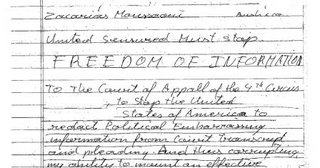 Zacarias Moussaoui
United Sensured Must Stop
FREEDOM OF INFORMATION
To The Court of Appall of the 4th Circus
, to Stop the United
States of America to
redact Political Embarrassing
information from Court Transcript
and pleading. And thus corrupting
my ability to mount an effective